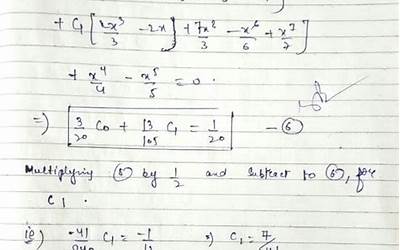 + C₁ [ 2x³/3 - 2x ] + 7x²/3 - x⁶/6 + x⁷/7 ]
+ x⁴/4 - x⁵/5 = 0.
=) 3/20 C₀ + 13/105 C₁ = 1/20 - ⑥
Multiplying ⑤ by 1/2 and Subtract to ⑥, for
C₁ .
ie) C₁ = -1/ ⇒ C₁ = 7/